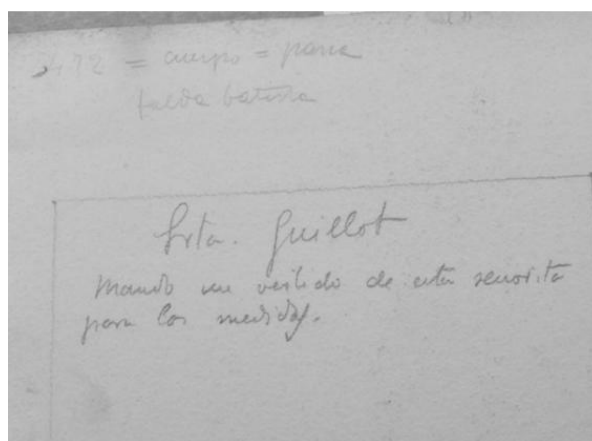 472 = cuerpo = pana
falda batista
Srta. Guillot
Mando un vestido de esta señorita
para las medidas.